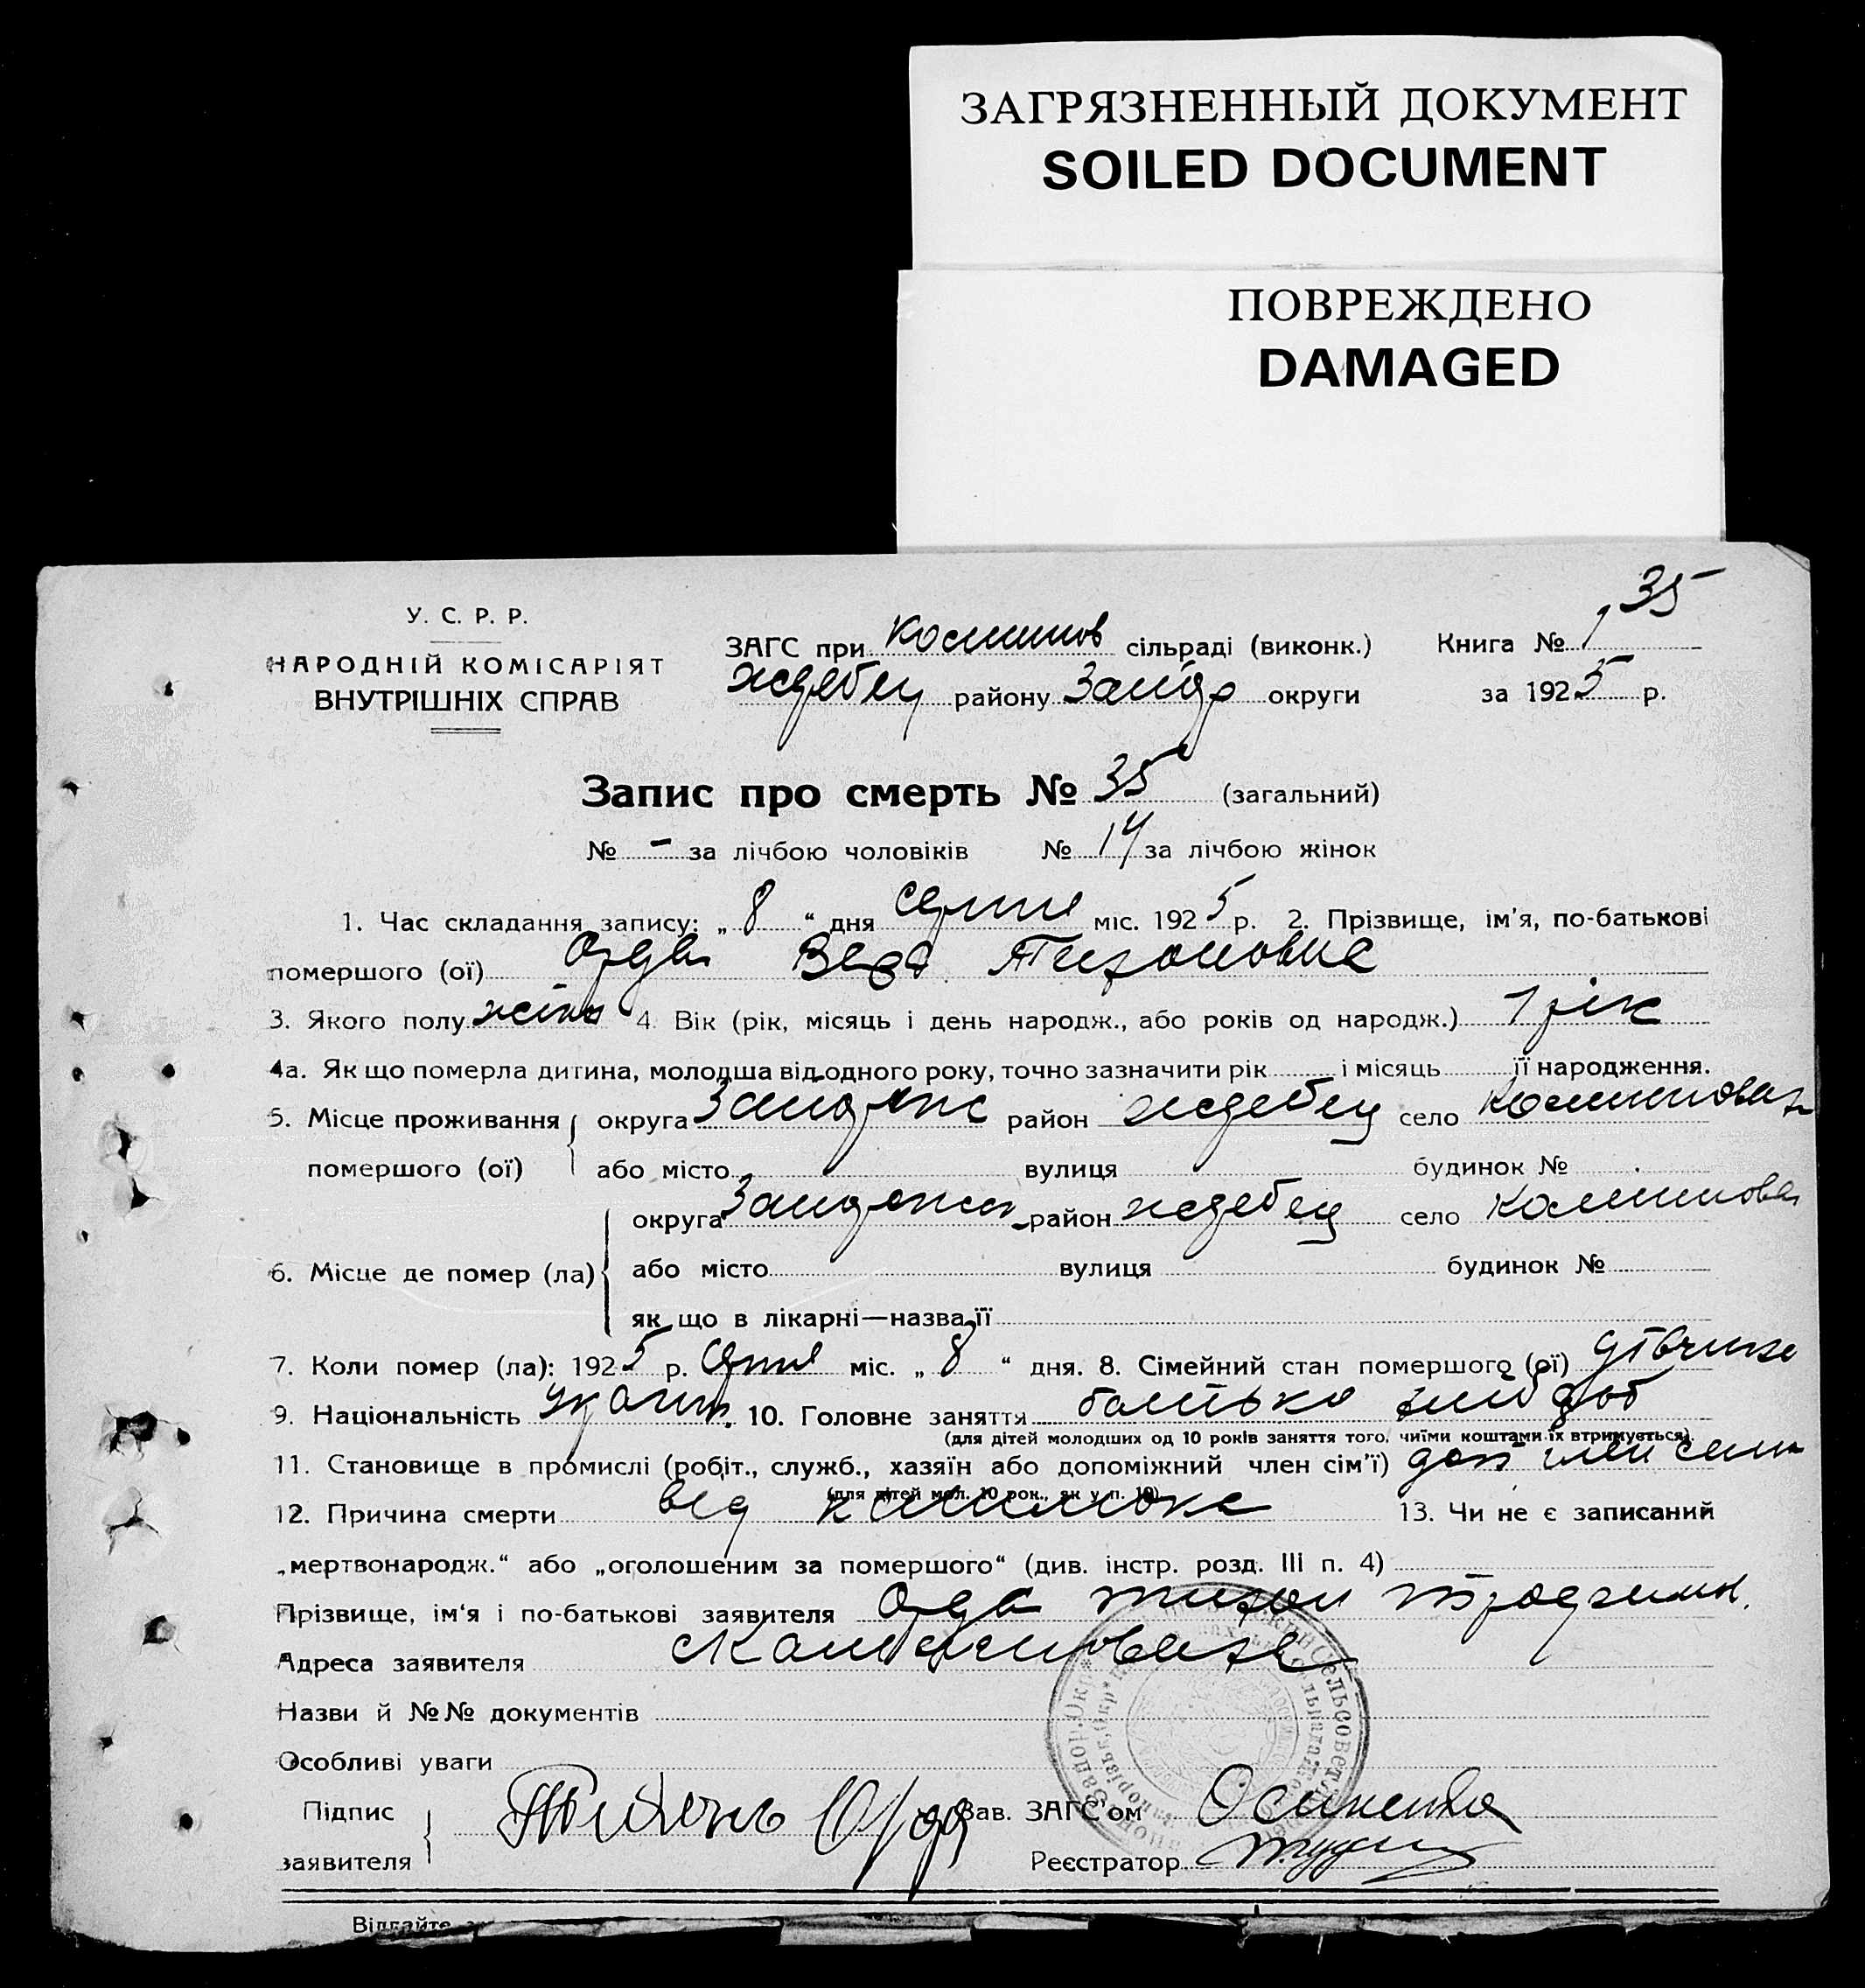 ЗАГРЯЗНЕННЫЙ ДОКУМЕНТ
SOILED DOCUMENT
ПОВРЕЖДЕНО
DAMAGED
35
У. С. Р. Р.
НАРОДНІЙ КОМІСАРІЯТ
ВНУТРІШНІХ СПРАВ
ЗАГС при сільраді (виконк.) Книга № 1
району округи за 1925 р.
Запис про смерть № 35 (загальний)
№ - за лічбою чоловіків № 14 за лічбою жінок
1. Час складання запису: „ 8 “ дня серпня міс. 1925 р. 2. Прізвище, ім'я, по-батькові
помершого (ої) Орда Вера Тихоновна
3. Якого полу жіно 4. Вік (рік, місяць і день народж., або років од народж.) 1 рік
4а. Як що померла дитина, молодша від одного року, точно зазначити рік і місяць її народження.
5. Місце проживання округа район жеребец село
помершого (ої) або місто вулиця будинок №
округа район жеребец село
6. Місце де помер (ла) або місто вулиця будинок №
як що в лікарні—назва її
7. Коли помер (ла): 1925 р. серпня міс. „ 8 “ дня. 8. Сімейний стан помершого (ої) дівчина
9. Національність україн. 10. Головне заняття батько хлібороб
(для дітей молодших од 10 років заняття того, чиїми коштами їх втримується).
11. Становище в промислі (робіт., служб., хазяїн або допоміжний член сім'ї) доп член сем
(для дітей мол. 10 рок., як у п. 10)
12. Причина смерти від 13. Чи не є записаний
„мертвонародж.“ або „оголошеним за помершого“ (див. інстр. розд. III п. 4)
Прізвище, ім'я і по-батькові заявителя Орда Тихон
Адреса заявителя
Назви й №№ документів
Особливі уваги
Підпис
заявителя
Тихонь Орда
Зав. ЗАГС'ом
Реєстратор